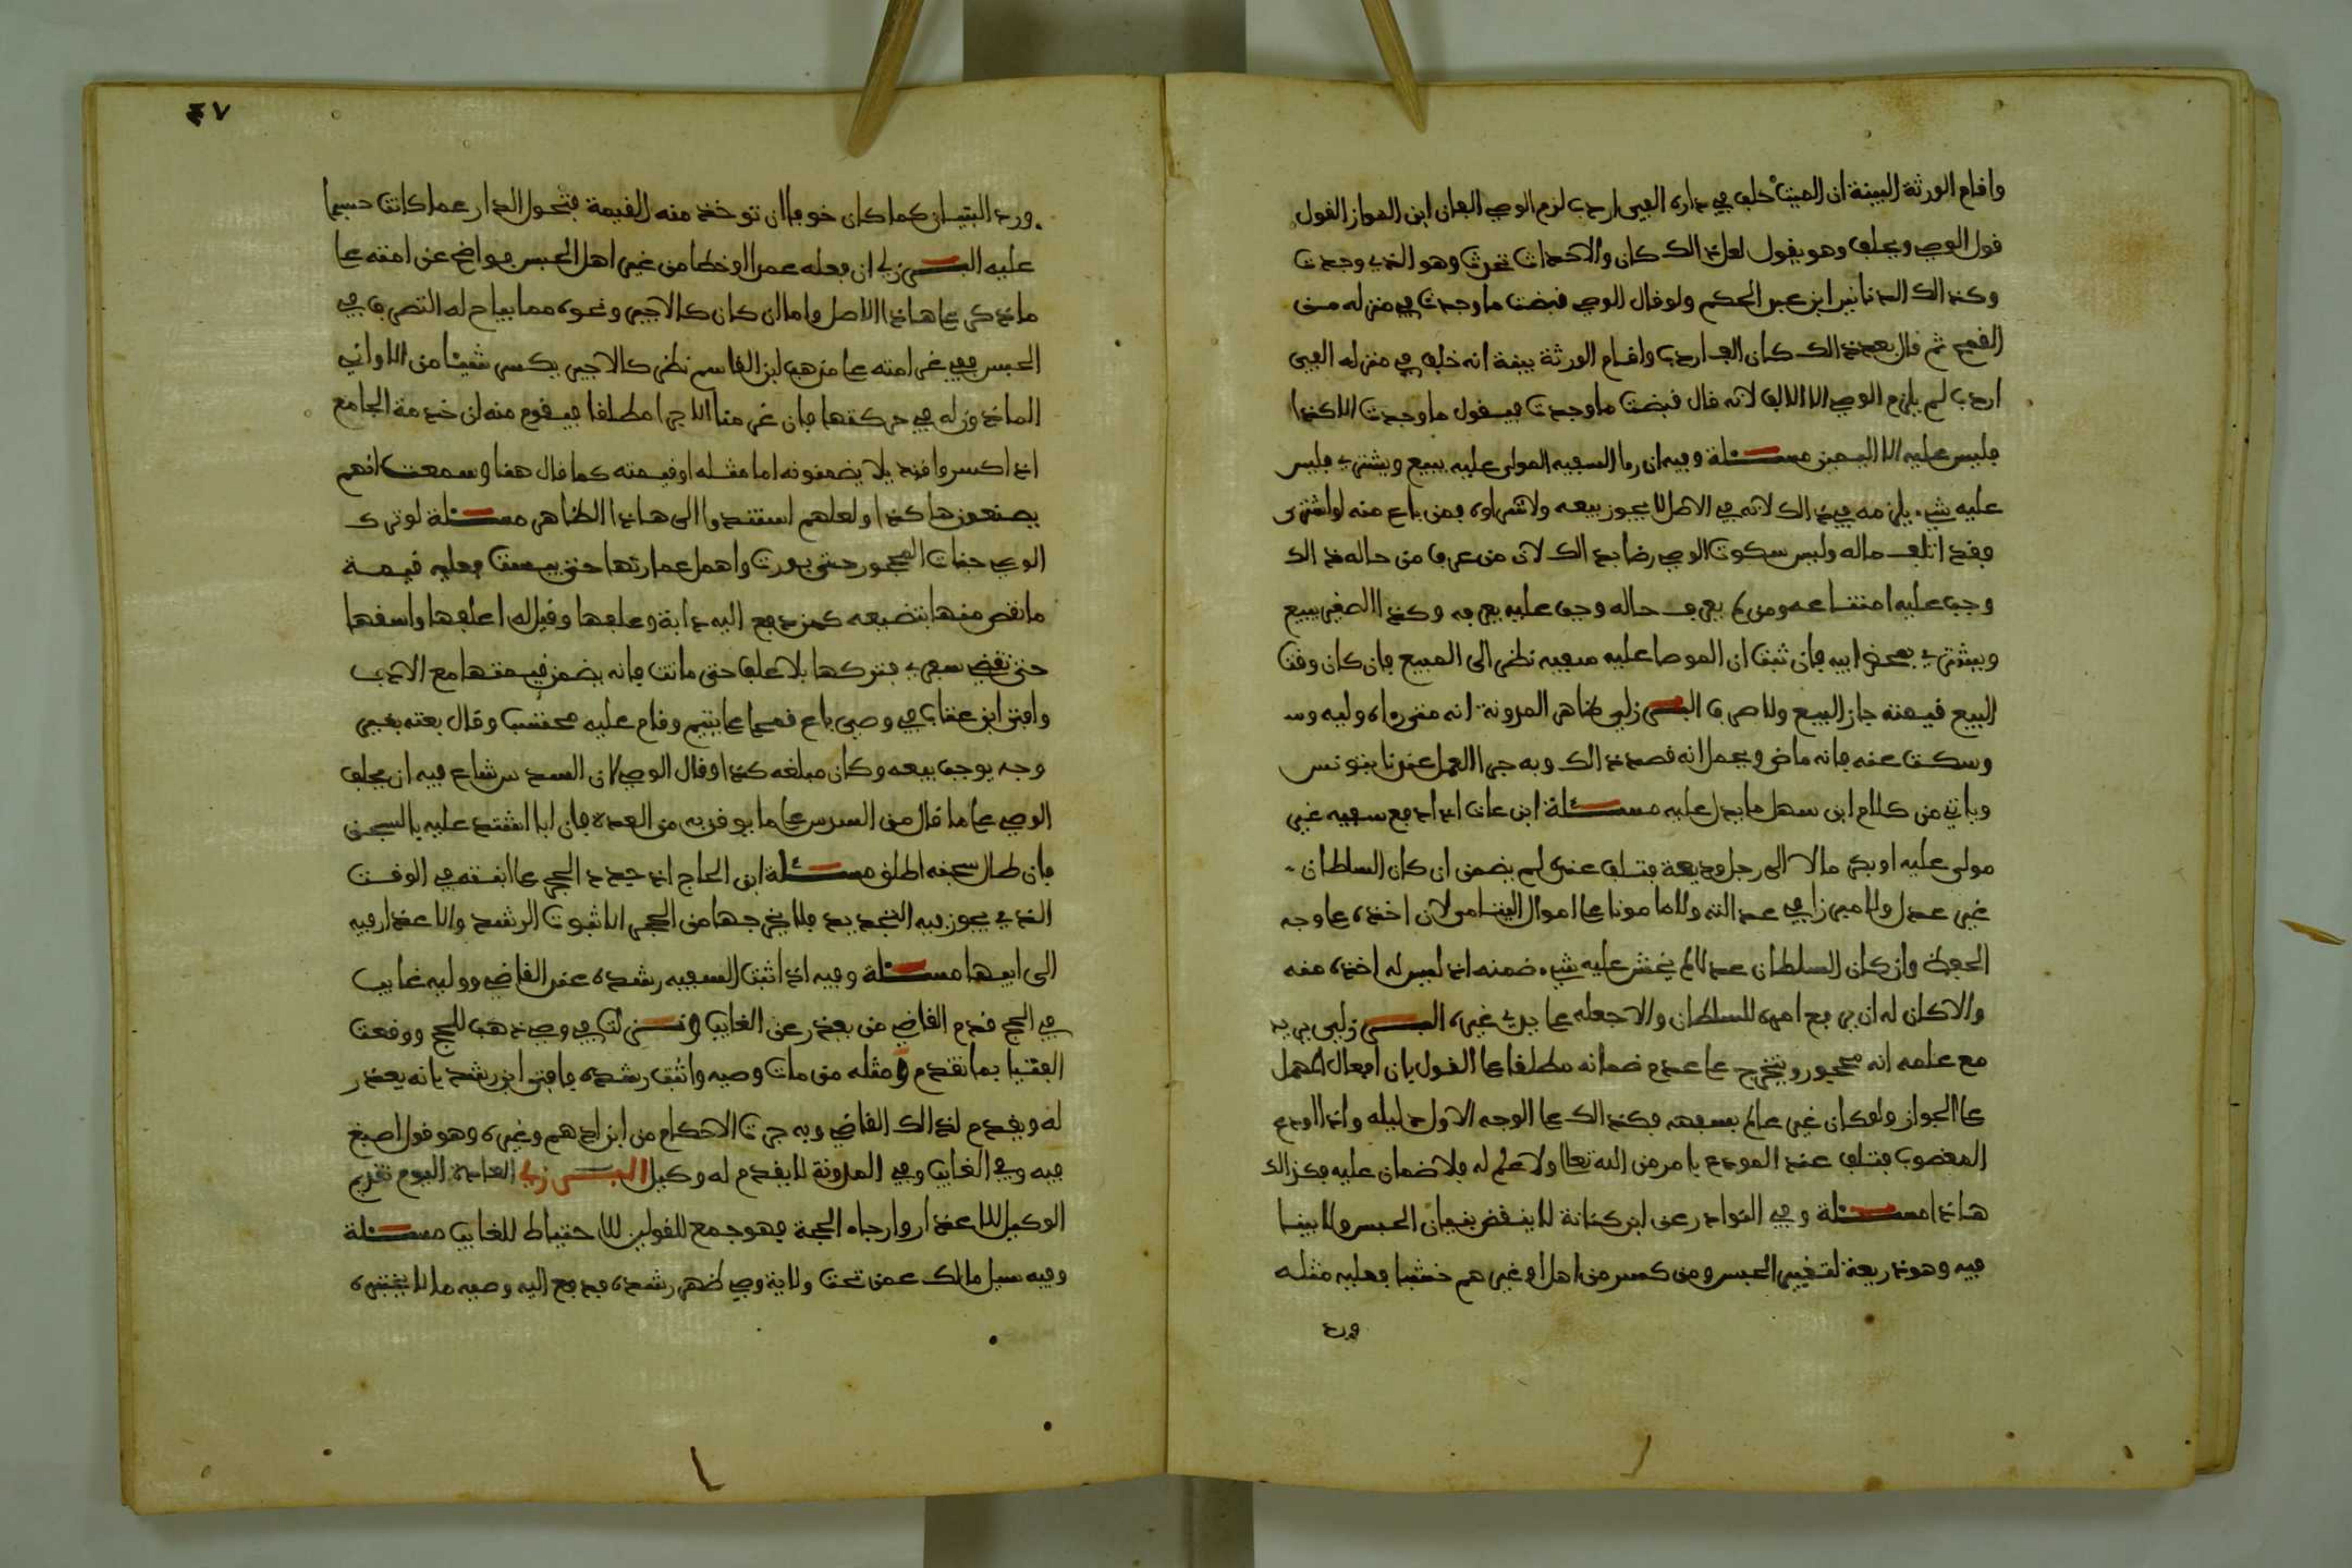 واقام الورثة البينة ان الميت خلف في داره الفي اردب لزم الوصي الفان ابن المواز القول
قول الوصي ويحلف وهو يقول لعل ذالك كان والاحداث تحدث وهو الذي وجدت
وكذالك الدنانير ابن عبد الحكم ولو قال الوصي قبضت ما وجدت في منزله من
القمح ثم قال بعد ذالك كان الف اردب واقام الورثة بينة انه خلف في منزله الفي
اردب لم يلزم الوصي الا الالف لانه قال قبضت ما وجدت فيقول ما وجدت الا كذا
فليس عليه الا اليمين مسئلة وفيه ان را السفيه المولى عليه يبيع ويشتري فليس
عليه شيء يلزمه في ذالك لانه في الاصل لا يجوز بيعه ولا شراوه فمن باع منه او اشترى
فقد اتلف ماله وليس سكوت الوصي رضا بذالك لان من عرف من حاله ذالك
وجب عليه امتناعه ومن لم يعرف حاله وجب عليه يعرفه وكذا الصغير يبيع
ويشتري بمحضر ابيه فان ثبت ان الموصا عليه سفيه نظر الى المبيع فان كان وقت
البيع قيمته جاز البيع ولا صرف البرزلي ظاهر المدونة انه متى رءاه وليه و
سكت عنه فانه ماض ويحمل انه قصد ذالك وبه جرا العمل عندنا بتونس
وياتي من كلام ابن سهل ما يدل عليه مسئلة ابن عات اذا دفع سفيه غير
مولى عليه او بكر مالا الى رجل وديعة فتلف عنده لم يضمن ان كان السلطان
غير عدل ولا ميزا في عدالته ولا مامونا على اموال اليتامى لان اخذه على وجه
الحفظ وان كان السلطان عدلا لم يخش عليه شيء ضمنه اذ ليس له اخذه منه
والا كان له ان يرفع امره للسلطان والا جعله على يدي غيره البرزلي يريد
مع علمه انه محجور ويتخرج على عدم ضمانه مطلقا على القول بان افعال المهمل
على الجواز ولو كان غير عالم بسفهه فكذالك على الوجه الاول دليله واذا اودع
المغصوب فتلف عند المودع بامر من الله تعالى ولا علم له فلا ضمان عليه فكذالك
هاذا مسئلة وفي النوادر عن ابن كنانة لا ينقض بنيان الحبس ولا يبنا
فيه وهو ذريعة لتغيير الحبس ومن كسر من اهل او غيرهم خشبا فعليه مثله
ورد
٤٧
ورد البنيان كما كان خوفا ان توخذ منه القيمة فتحول الدار عما كانت حبسا
عليه البرزلي ان فعله عمدا او خطا من غير اهل الحبس فواضح عن امنته على
ما ذكر على هاذا الاصل واما ان كان كالاجير ونحوه مما يباح له التصرف في
الحبس ففي غرامته على مذهب ابن القاسم نظر كالاجير يكسر شيئا من الاواني
الماذون له في حركتها فان غرمنا الاجرا مطلقا فيقوم منه ان خدمة الجامع
اذا كسروا قنديلا يضمنونه اما مثله او قيمته كما قال هنا وسمعت انهم
يصنعون هاكذا ولعلهم استندوا الى هاذا الظاهر مسئلة لو ترك
الوصي جنات المحجور حتى بورت واهمل عمارتها حتى يبست فعليه قيمة
ما نقص منها بتضييعه كمن دفع اليه دابة وعلفها وقيل له اعلفها واسقها
حتى تقضي سفري فتركها بلا علف حتى ماتت فانه يضمن قيمتها مع الادب
وافتى ابن عتاب في وصي باع قمحا على يتيم وقام عليه محتسب وقال بعته بغير
وجه يوجب بيعه وكان مبلغه كذا وقال الوصي لان السدس شاع فيه ان يحلف
الوصي على ما قال من السدس على ما يوقن به من العدة فان ابا اشتد عليه بالسجن
فان طال سجنه اطلق مسئلة ابن الحاج اذ جدد الحجر على ابنته في الوقت
الذي يجوز فيه التجديد فلا يخرجها من الحجر الا ثبوت الرشد والاعذار فيه
الى ابيها مسئلة وفيه اذا ثبت السفيه رشده عند القاضي ووليه غايب
في الحج قدم القاضي من يعذر عن الغايب ونزلت في وصي ذهب للحج ووقعت
الفتيا بما تقدم ومثله من مات وصيه واثبت رشده فافتى ابن رشد بانه يعذر
له ويقدم لذالك القاضي وبه جرت الاحكام من ابن ادهم وغيره وهو قول اصبغ
فيه وفي الغايب وفي المدونة لا يقدم له وكيل البرزلي العادة اليوم تقديم
الوكيل للاعذار وارجاء الحجة فهو جمع للقولين للاحتياط للغايب مسئلة
وفيه سيل مالك عمن تحت ولاية وصي ظهر رشده فدفع اليه وصيه مالا يختبره